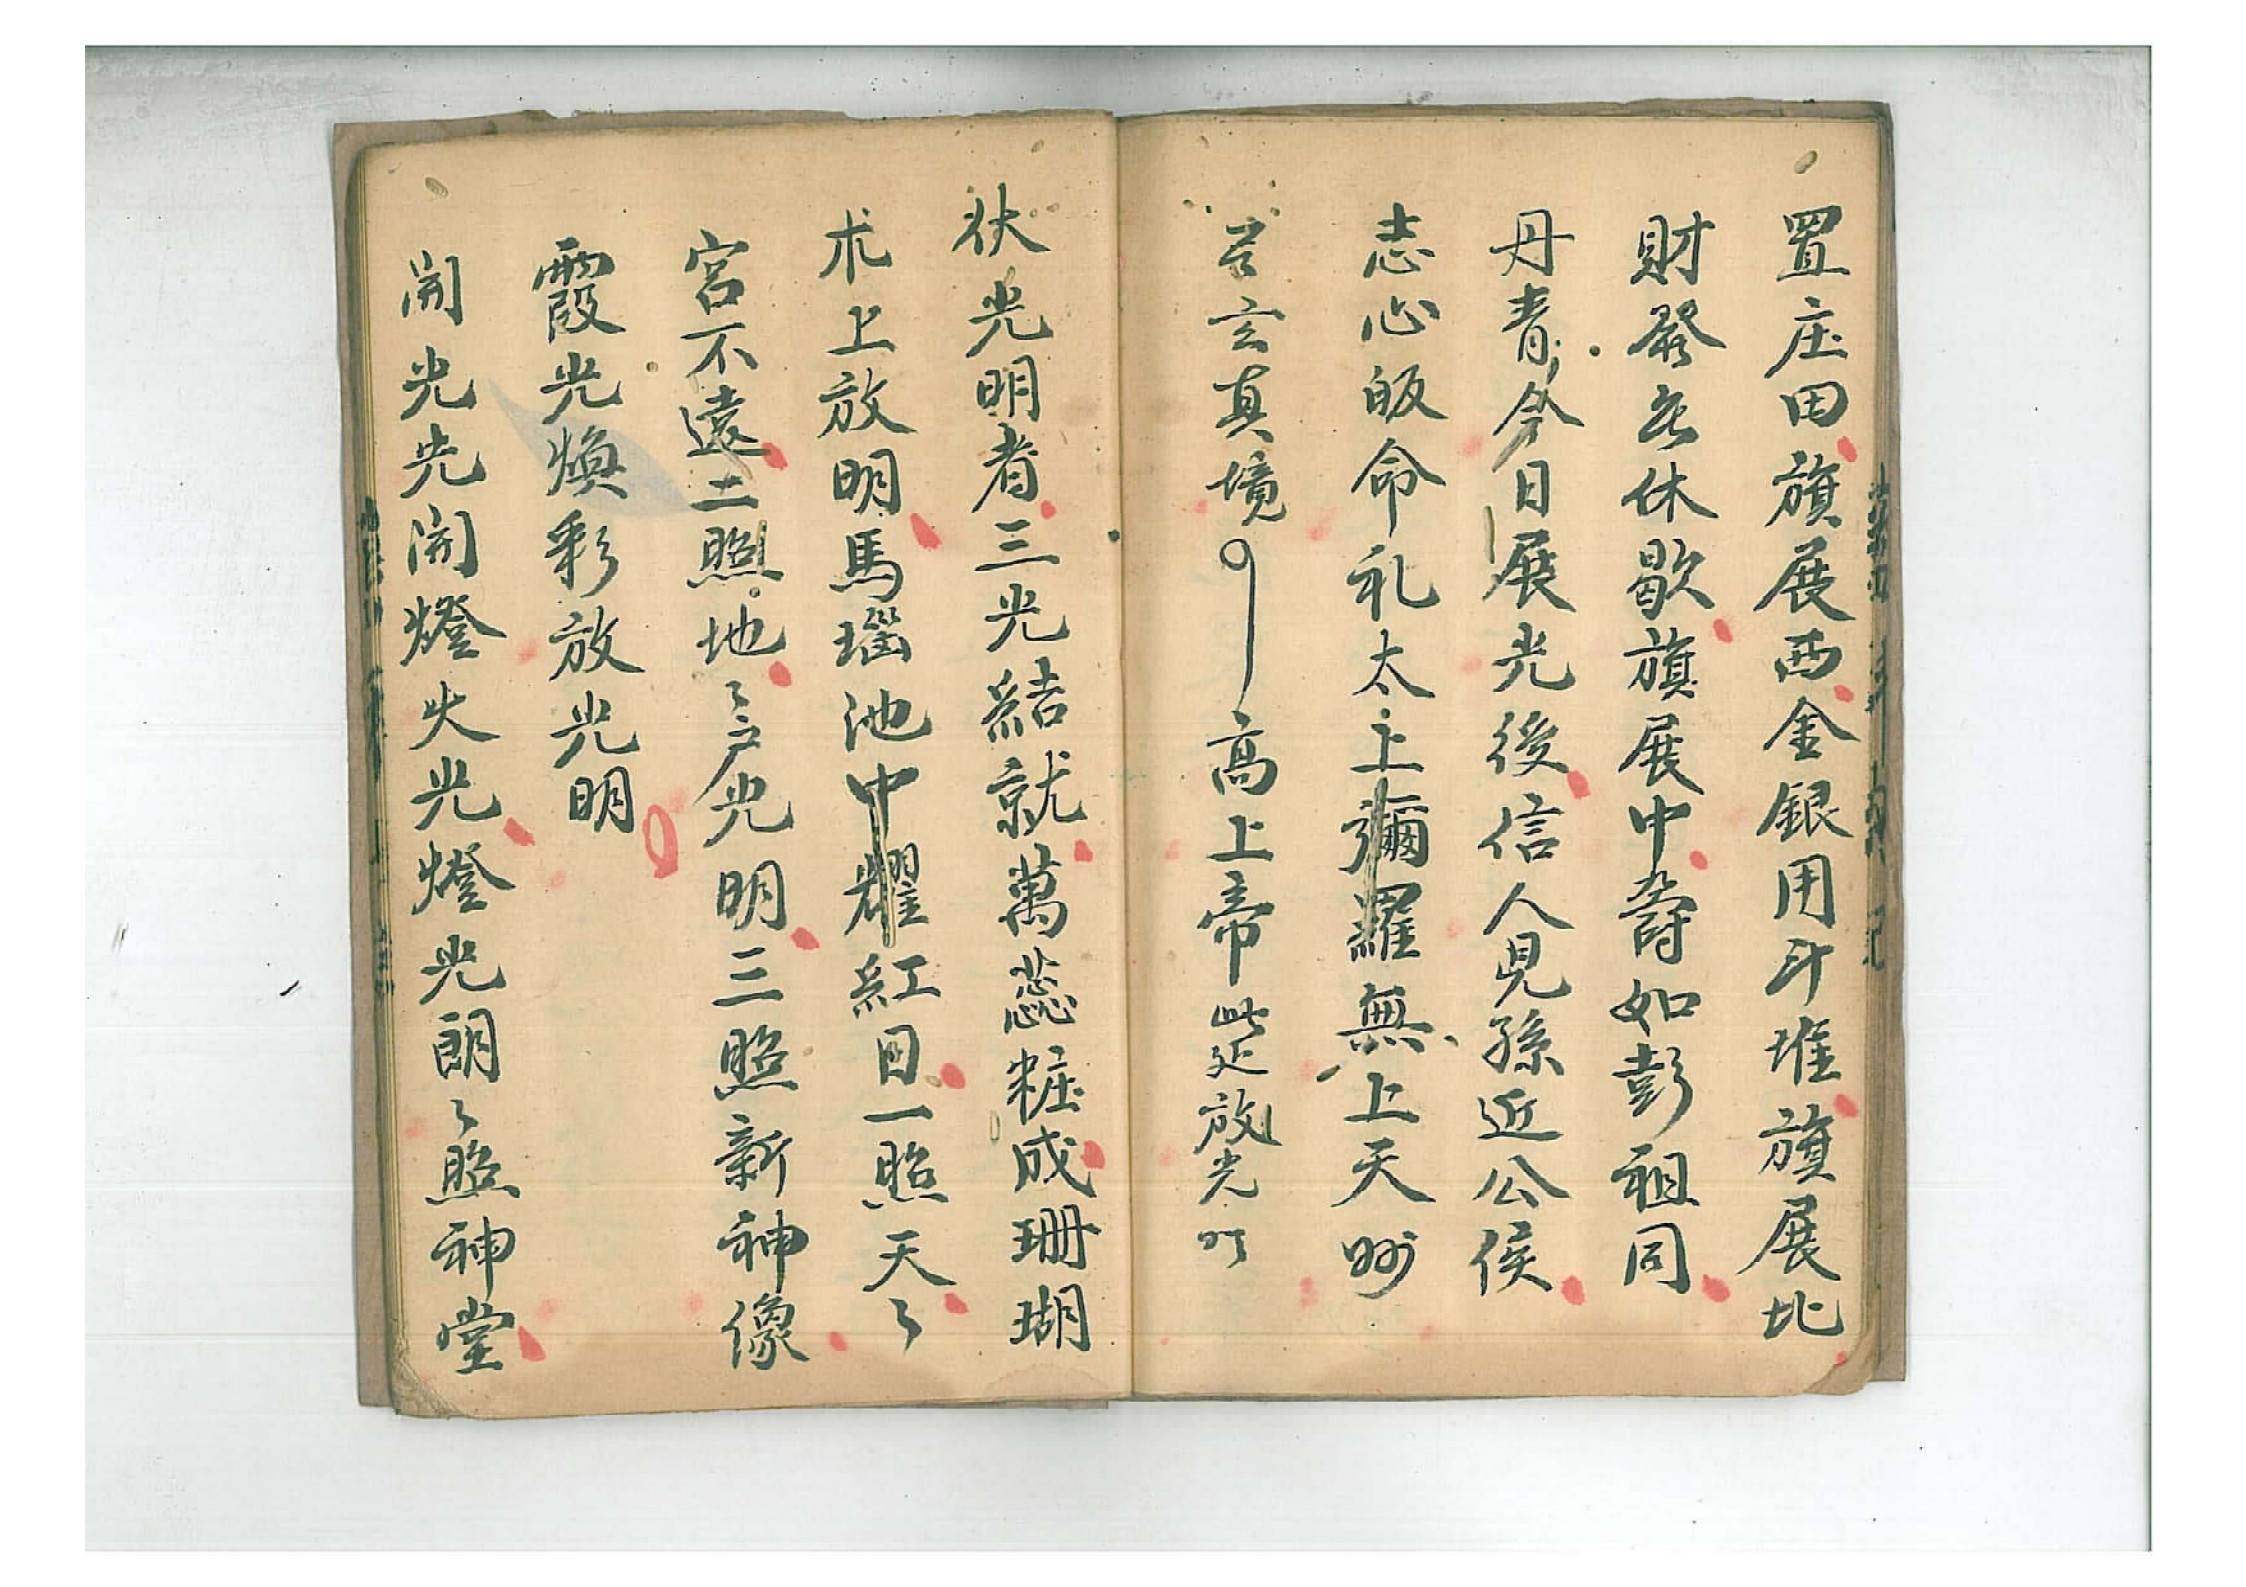 置庄田旗展西金銀用斗堆旗展北
財發無休歇旗展中壽如彭祖同
丹青今日展光後信人見孫近公侯
志心皈命礼太上彌羅無上天妙
玄真境高上帝此処放光明
伏光明者三光結就萬蕊粧成珊瑚
朮上放明馬瑙池中耀紅日一照天〻
宮不遠二照地〻户光明三照新神像
霞光煥彩放光明
開光先開燈火光燈光朗〻照神堂